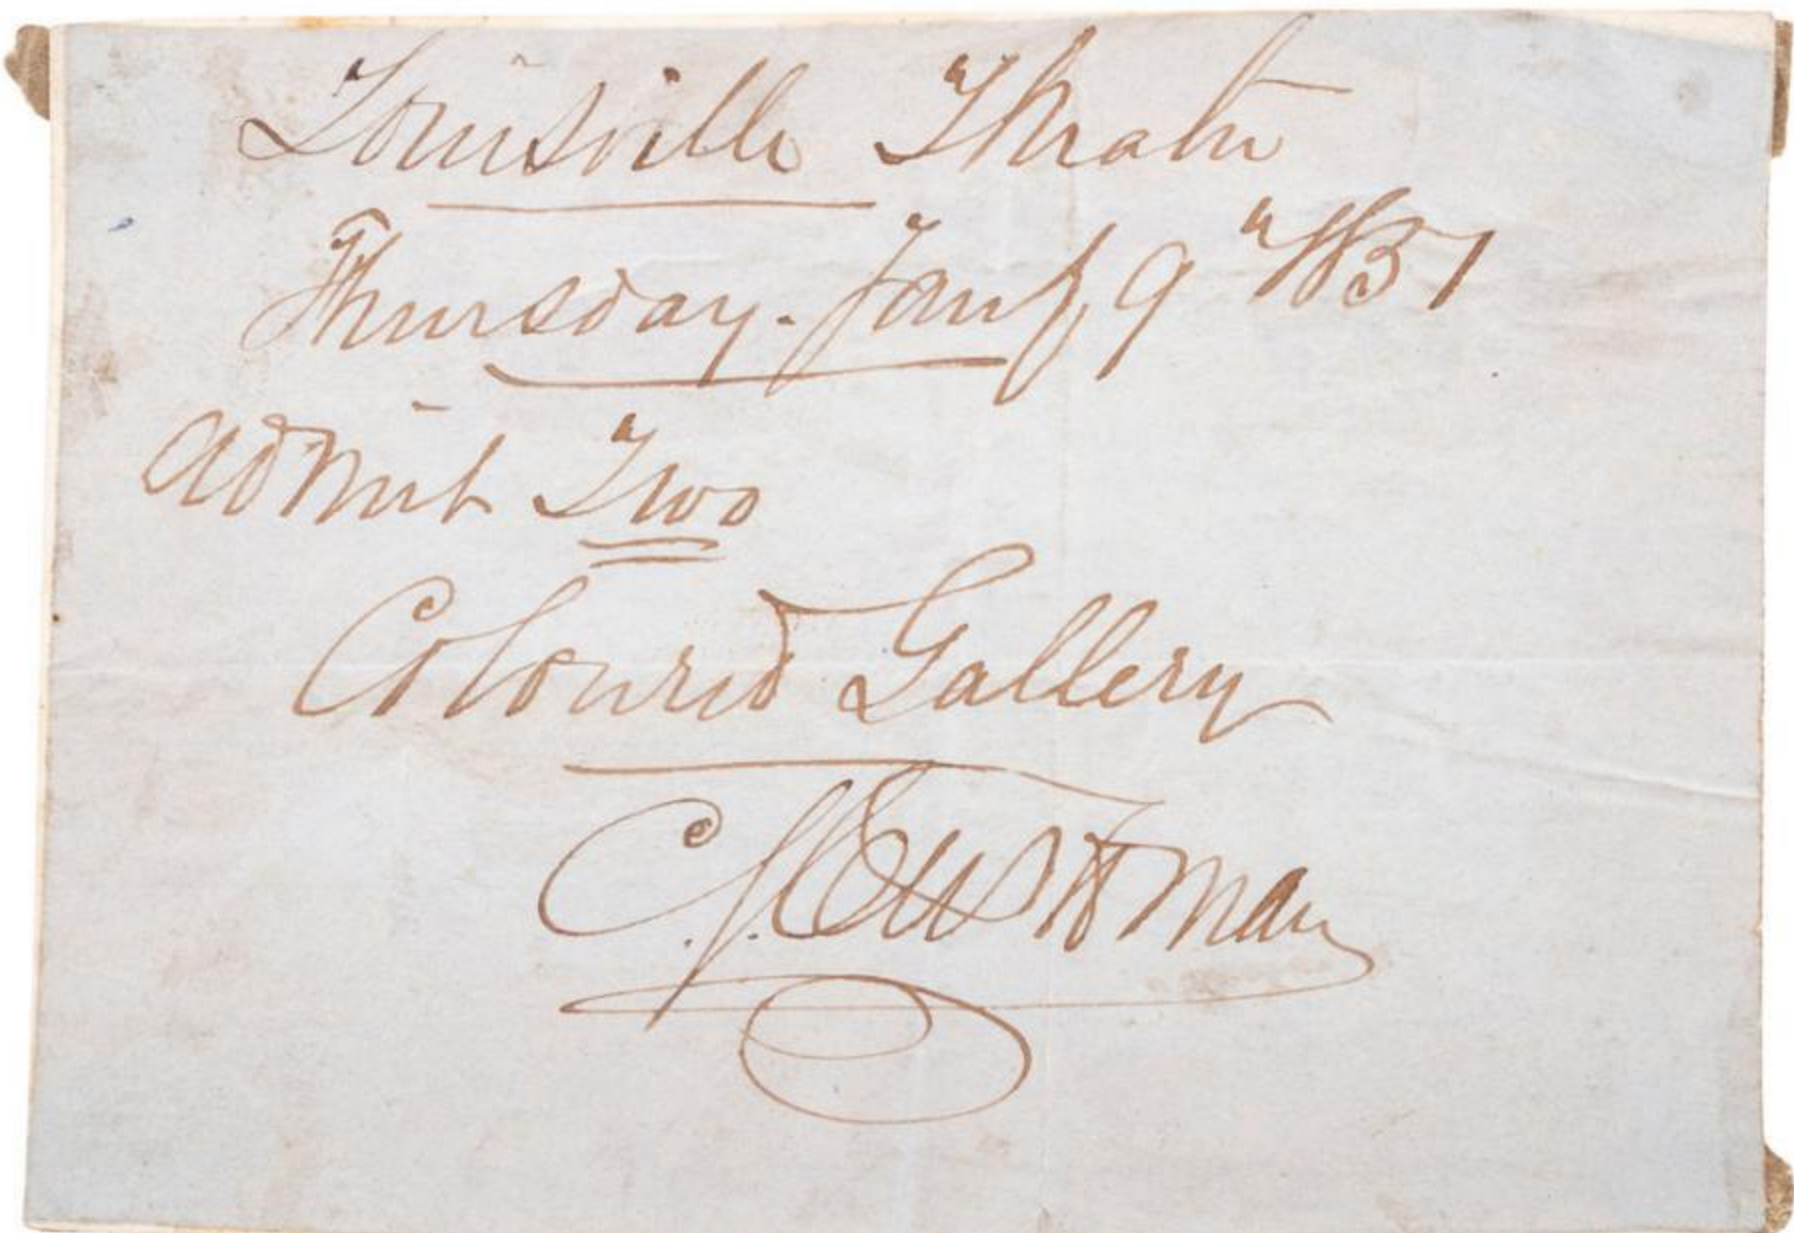 Louisville Theatre
Thursday. Jany 9th 1851
Admit Two
Coloured Gallery
C. Cushman